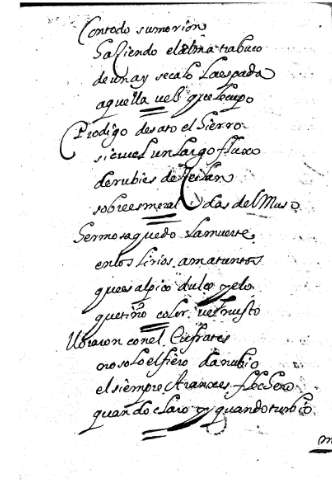 Con todo su morrion
haciendo el alma trabuco
de un ay se calo la espada
aquella vez que le cupo
Prodigo desato el hierro
si cruel un largo fluxo
de rubies de Ceilan
sobre esmeraldas del Muso
Hermosa quedo la muerte
en los lirios amatuntos
que salpico dulce yelo
que tiño color venusto
lloraron con el Eufrates
no solo el fiero danubio
el siempre Araxes flechero
quando claro y quando turbio